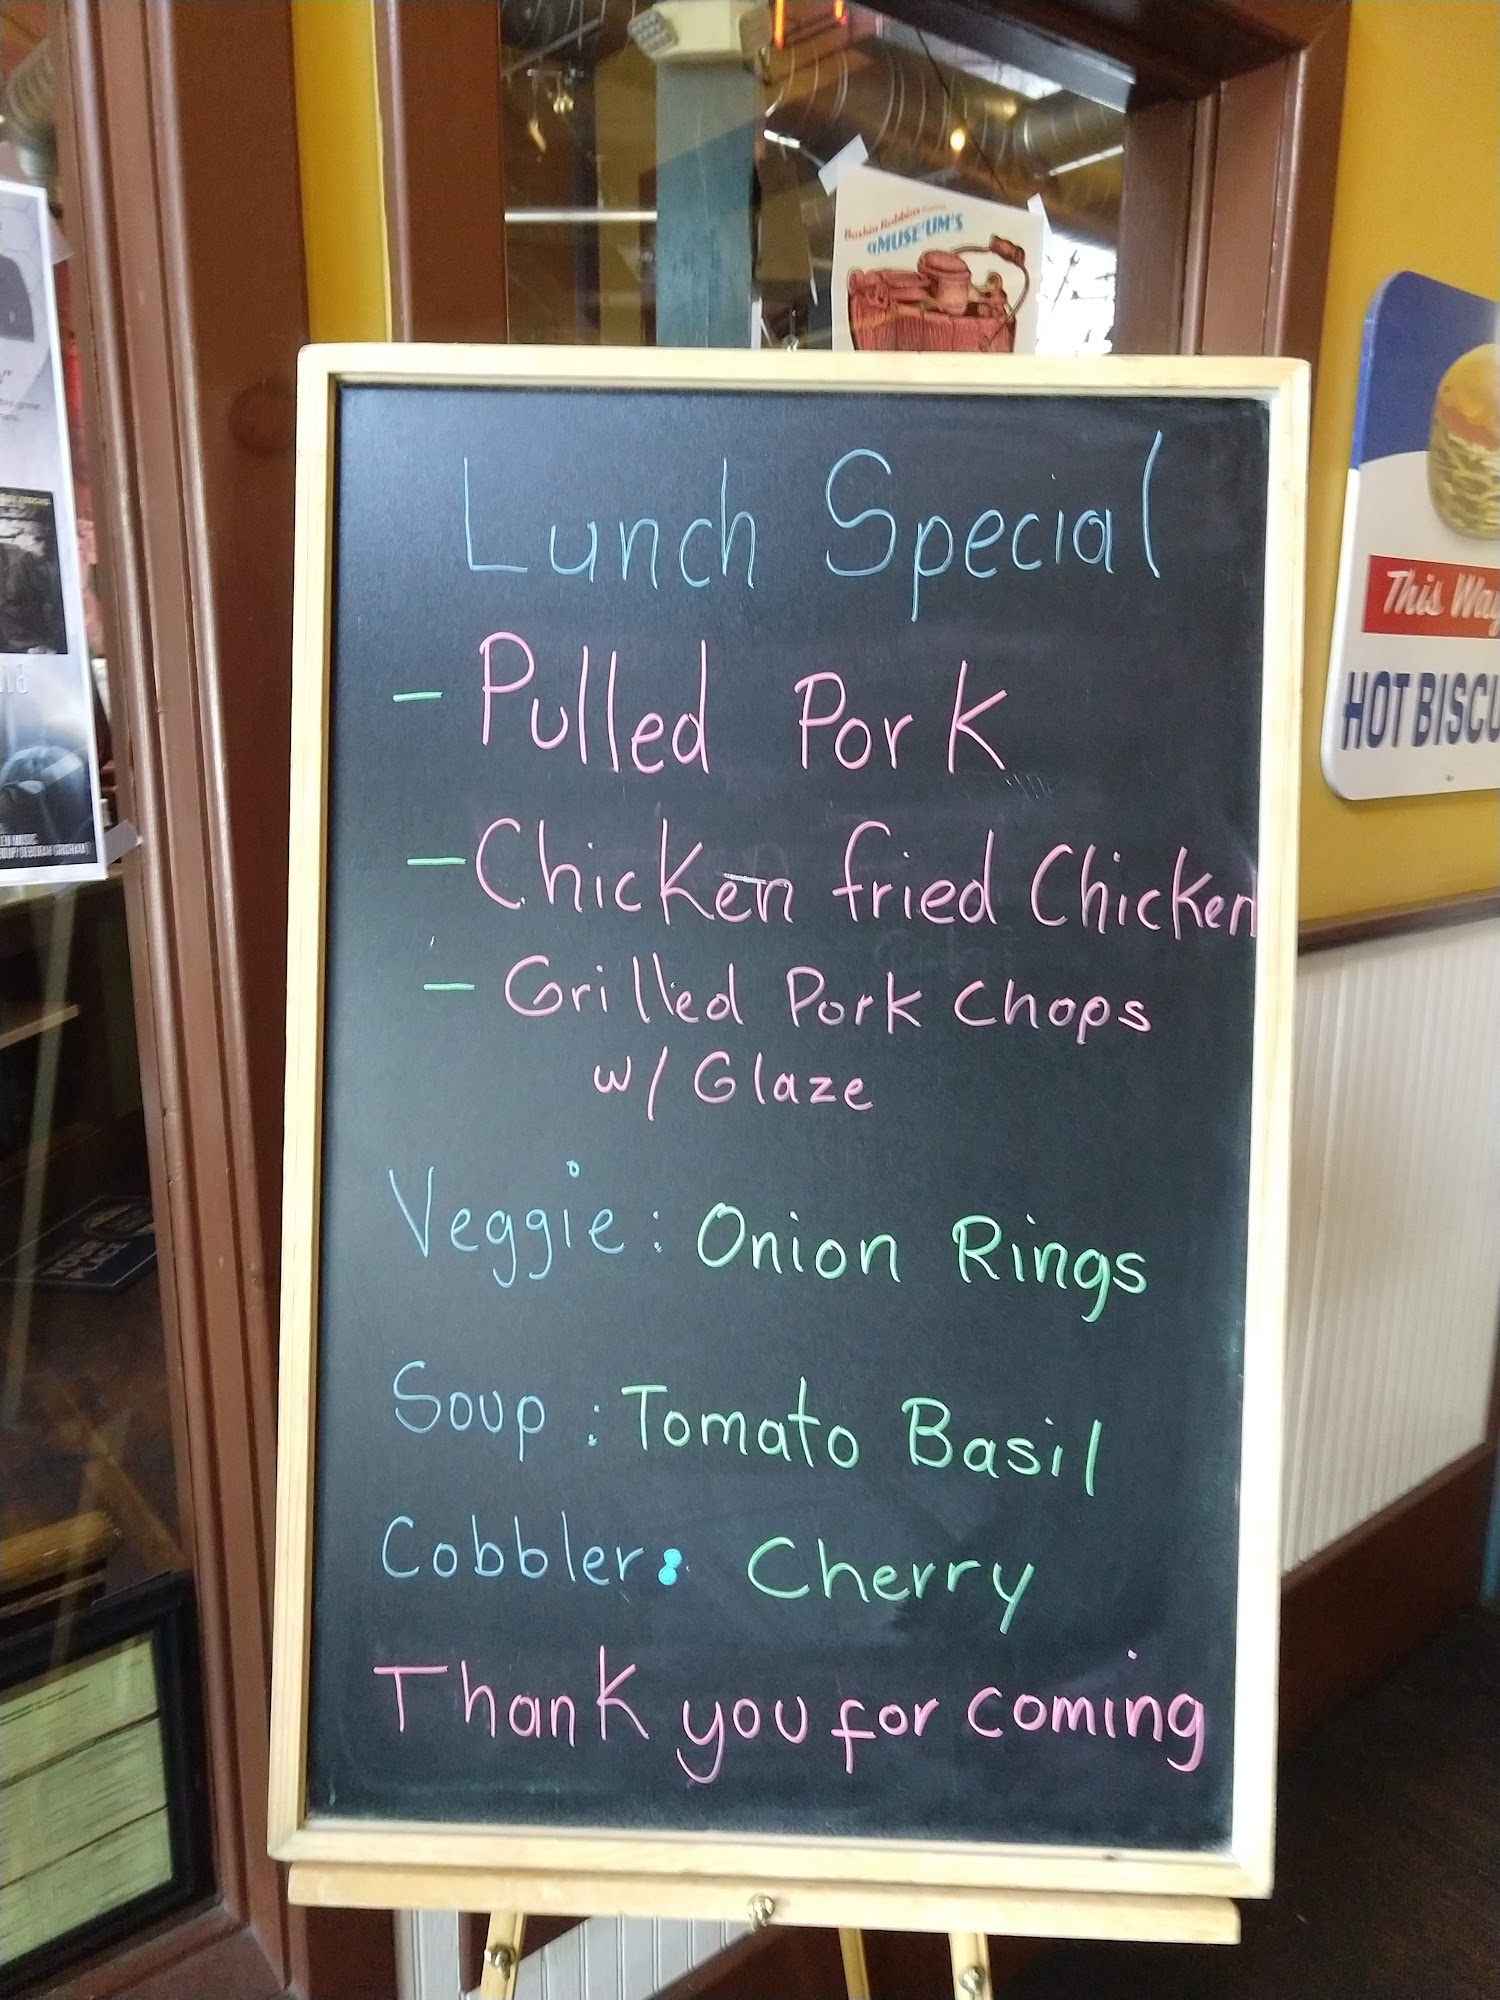 Lunch Special
- Pulled Pork
- Chicken fried Chicken
- Grilled Pork Chops
w/ Glaze
Veggie: Onion Rings
Soup: Tomato Basil
Cobbler: Cherry
Thank you for coming
aMUSE'UM'S
This Way
HOT BISCU
YOUR
PLACE